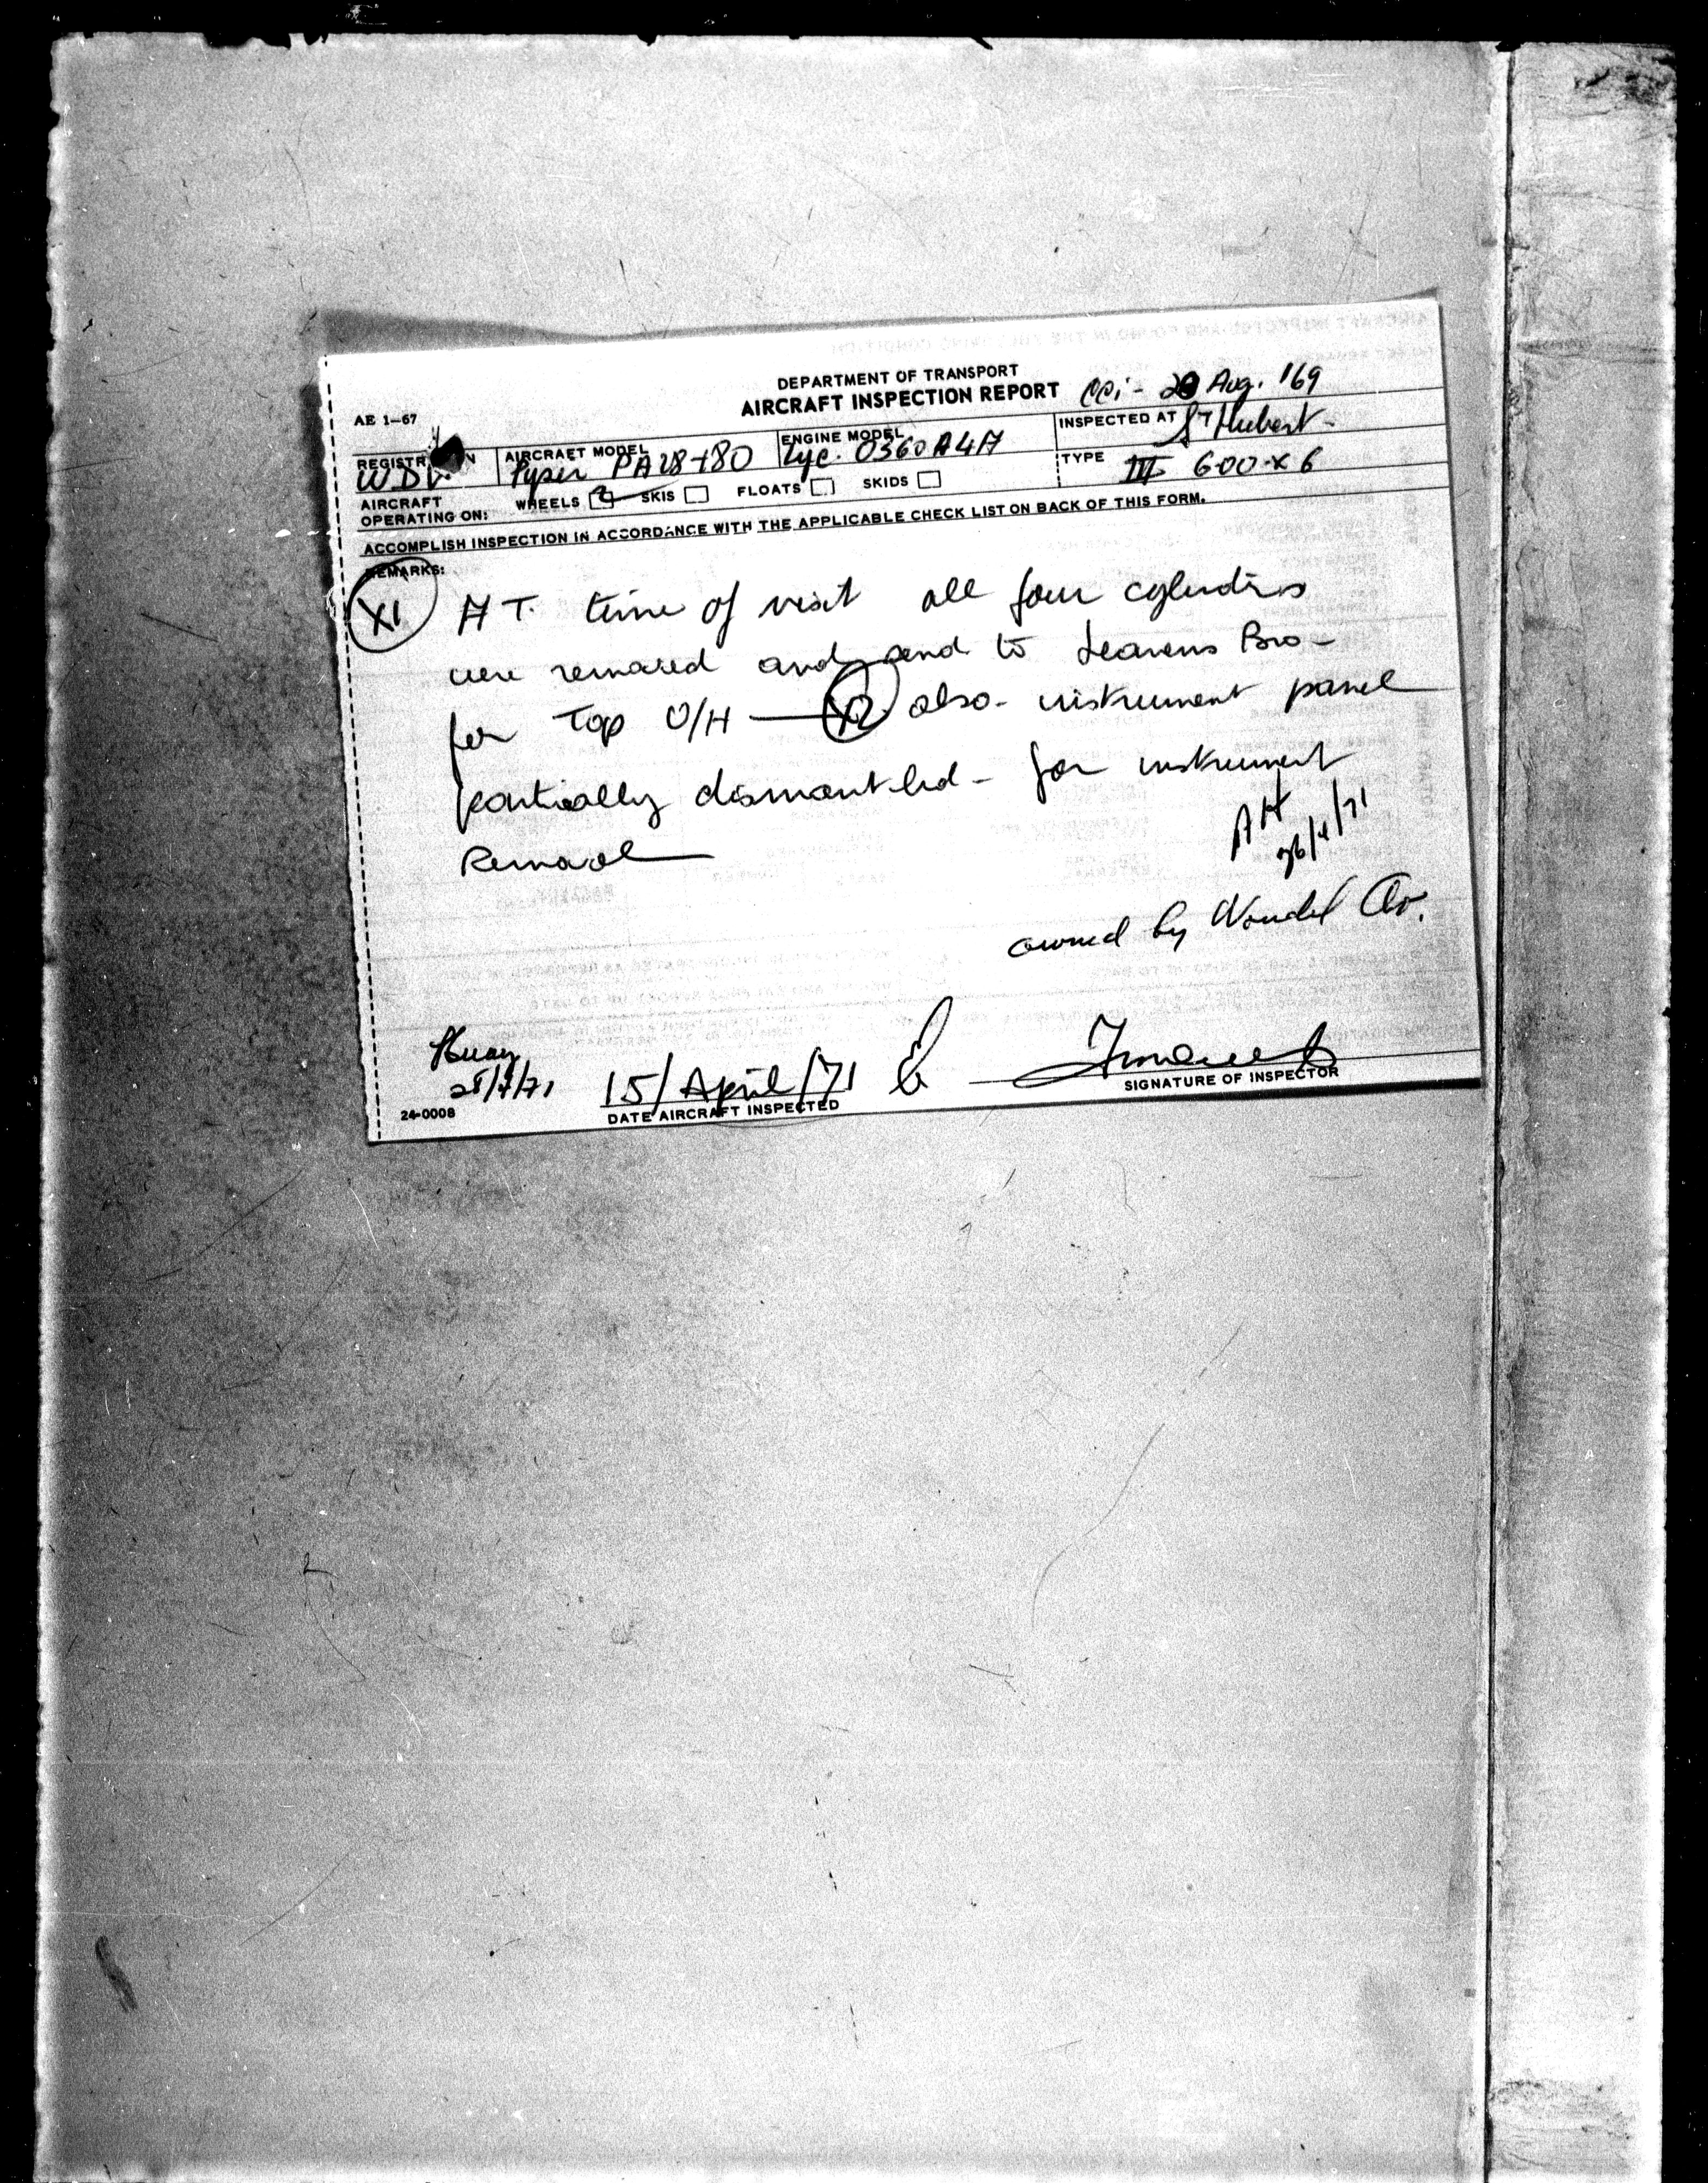 DEPARTMENT OF TRANSPORT
AIRCRAFT INSPECTION REPORT
CCi - 20 Aug. '69
AE 1-67
REGISTR N
AIRCRAFT MODEL
Pyper PA28-180
ENGINE MODEL
Lyc. O360 A4A
INSPECTED AT St Hubert-
TYPE III 600-X6
AIRCRAFT OPERATING ON:
WHEELS SKIS FLOATS SKIDS
ACCOMPLISH INSPECTION IN ACCORDANCE WITH THE APPLICABLE CHECK LIST ON BACK OF THIS FORM.
REMARKS:
X1 AT. time of visit all four cylinders
were removed and send to Leavens Bro-
for Top O/H — X2 also - instrument panel
partially dismantled - for instrument
Removal
AH
26/4/71
owned by Wondel Av.
15/April/71
DATE AIRCRAFT INSPECTED
SIGNATURE OF INSPECTOR
24-0008